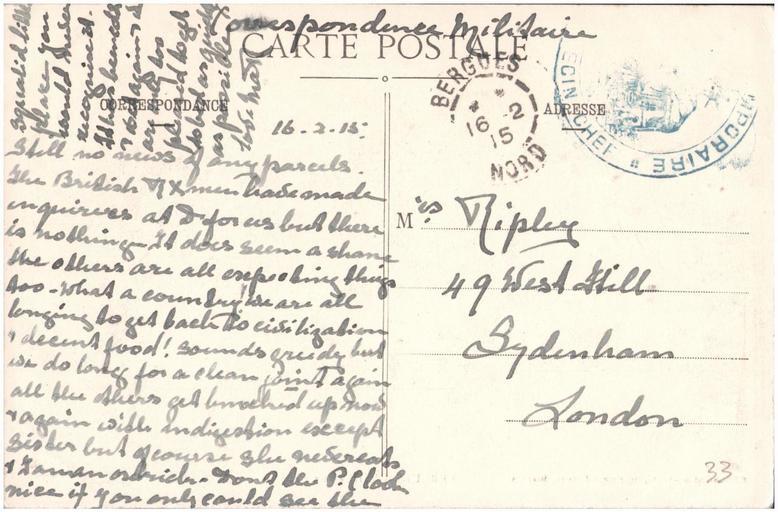 Correspondance Militaire
CARTE POSTALE
CORRESPONDANCE
ADRESSE
BERGUES
16-2
15
NORD
ECIN CHEF
PORAIRE
16.2.15.
Still no news of any parcels.
The British Rx men have made
inquiries at D for us but there
is nothing - It does seem a shame
the others are all expecting things
too - What a country! We are all
longing to get back to civilization
& decent food! Sounds greedy but
we do long for a clean joint again
all the others get knocked up now
& again with indigestion except
Sister but of course she never eats
& I am an ostrich - Dont the P. Clock
nice if you only could see the
squalid little
place you
would never
recognise it.
Mis Ripley
49 West Hill
Sydenham
London
33